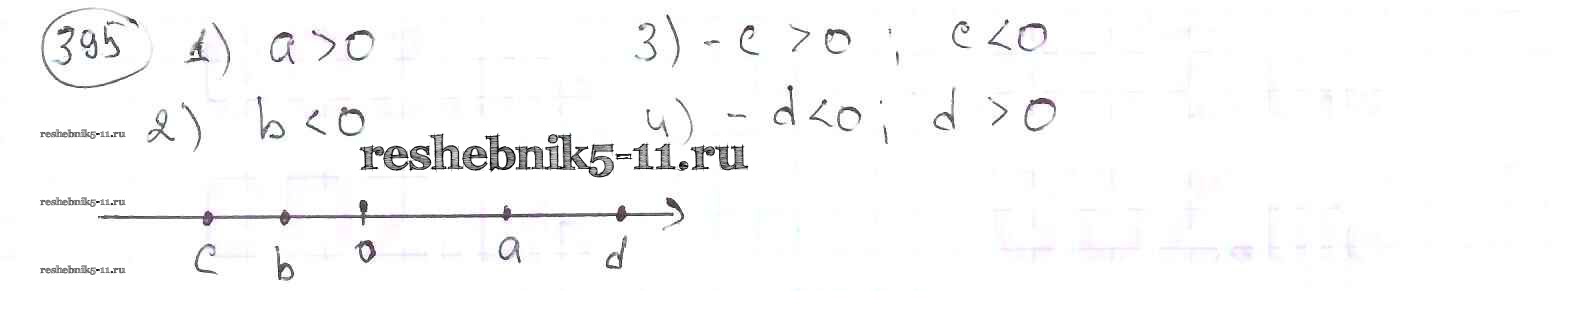 395 1) a>0 3) -c>0; c<0
2) b<0 4) -d<0; d>0
reshebnik5-11.ru
reshebnik5-11.ru
reshebnik5-11.ru
c b 0 a d
reshebnik5-11.ru